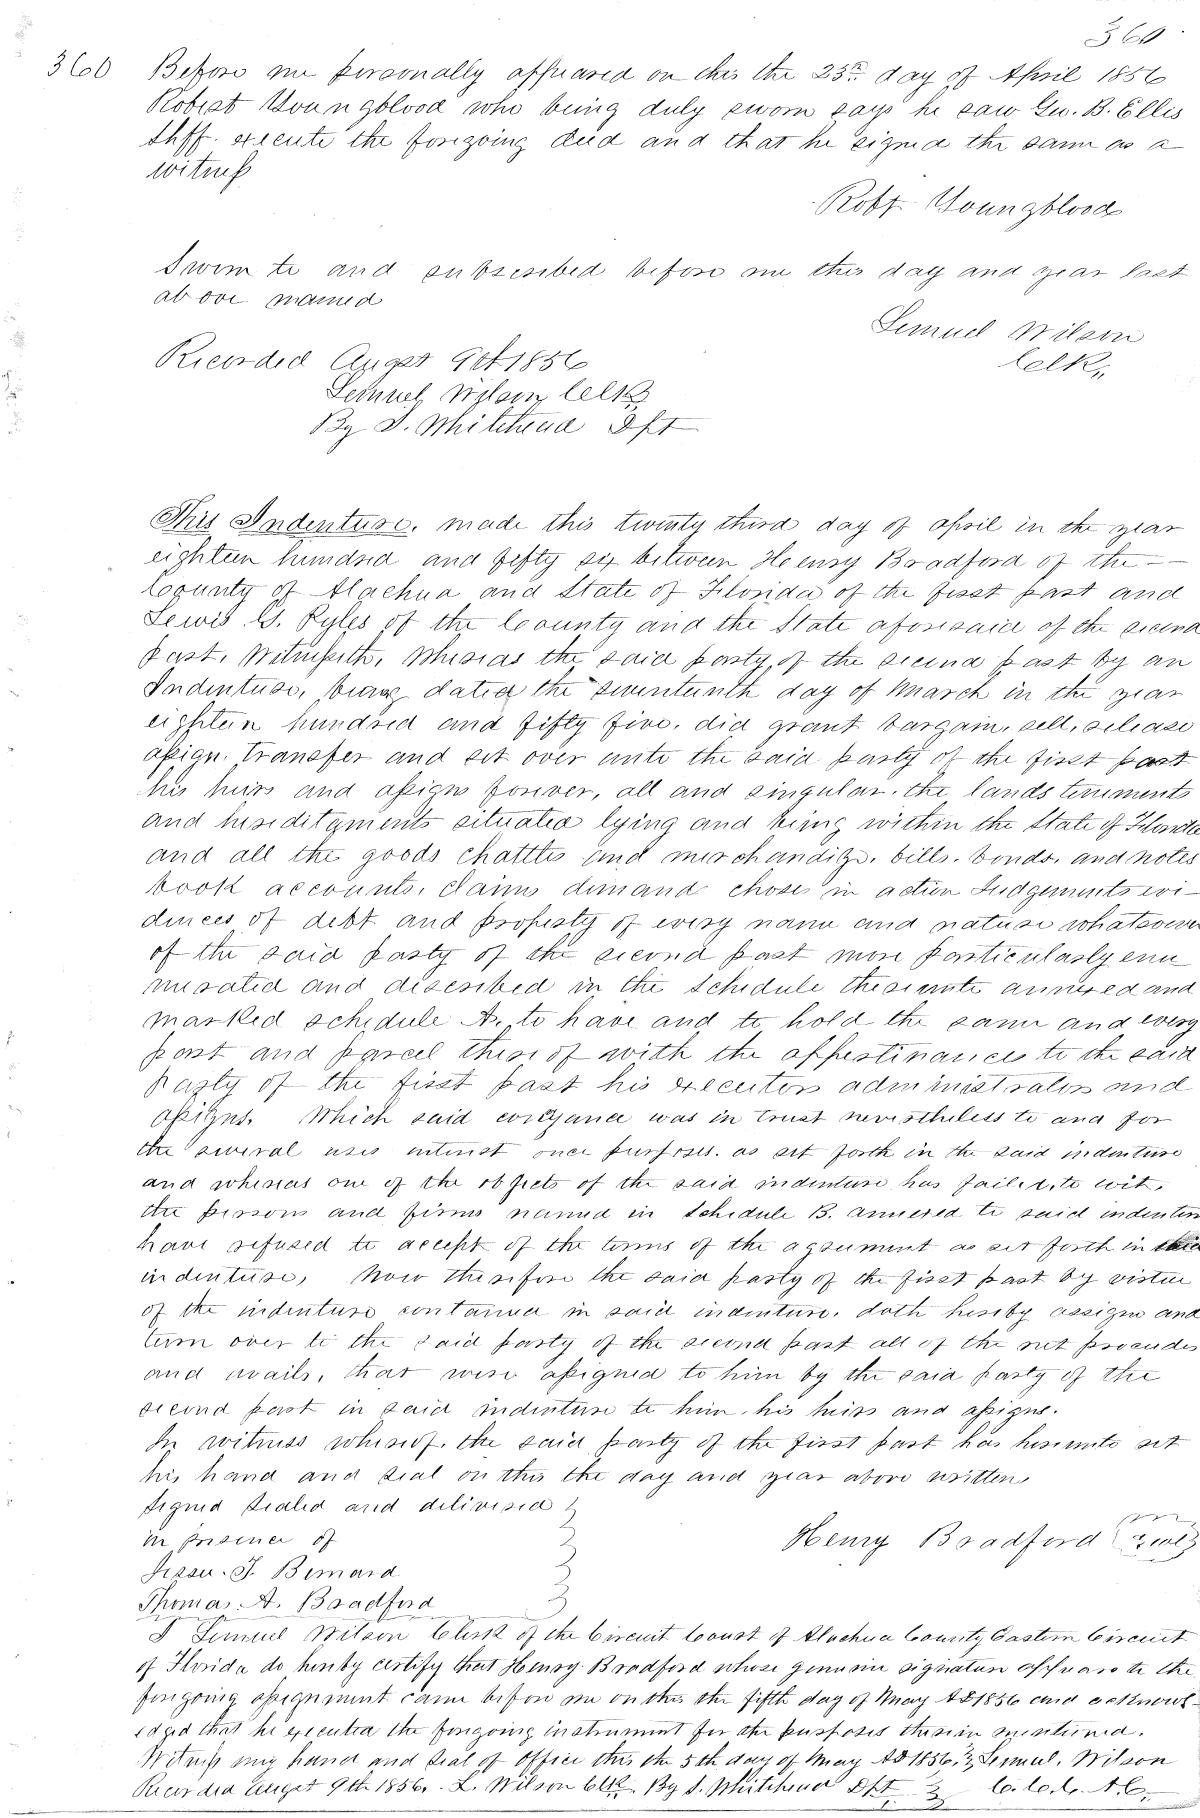 360
360 Before me personally appeared on this the 23rd day of April 1856
Robert Youngblood who being duly sworn says he saw Geo. B. Ellis
Shff. execute the foregoing deed and that he signed the same as a
witness
Robt. Youngblood
Sworn to and subscribed before me this day and year last
above named
Lemuel Wilson
Clk,,
Recorded Augst 9th 1856
Lemuel Wilson Clk
By S. Whitehead Dpt
This Indenture. made this twenty third day of april in the year
eighteen hundred and fifty six between Henry Bradford of the
County of Alachua and State of Florida of the first part and
Lewis G. Pyles of the County and the State aforesaid of the second
part. Witnesseth, Whereas the said party of the second part by an
Indenture, being dated the seventeenth day of March in the year
eighteen hundred and fifty five. did grant bargain. sell. release
assign. transfer and set over unto the said party of the first part
his heirs and assigns forever, all and singular. the lands tenements
and heriditaments situated lying and being within the State of Florida
and all the goods chattles and merchandize. bills. bonds. and notes
book accounts. claims demands choses in action Judgements evi-
dences of debt and property of every name and nature whatsoever
of the said party of the second part more particularly enu
merated and discribed in the Schedule thereunto annexed and
marked schedule A. to have and to hold the same and every
part and parcel thereof with the appertinances to the said
party of the first part his executors administrators and
assigns. Which said conveyance was in trust nevertheless to and for
the several uses interest once purposes. as set forth in the said indenture
and whereas one of the objects of the said indenture has failed, to wit.
the persons and firms named in Schedule B. annexed to said indenture
have refused to accept of the terms of the agreement as set forth in said
indenture, Now therefore the said party of the first part by virtue
of the indenture contained in said indenture. doth hereby assign and
turn over to the said party of the second part all of the net proceeds
and avails, that were assigned to him by the said party of the
second part in said indenture to him his heirs and assigns.
In witness whereof. the said party of the first part has hereunto set
his hand and seal on this the day and year above written
Signed Sealed and delivered
in presence of
Henry Bradford (Seal)
Jesse. J. Bernard
Thomas. A. Bradford
I Lemuel Wilson Clerk of the Circuit Court of Alachua County Eastern Circuit
of Florida do hereby certify that Henry Bradford whose genuine signature appears to the
foregoing assignment came before me on this the fifth day of May AD 1856 and acknowl-
edged that he executed the foregoing instrument for the purposes therein mentioned.
Witness my hand and Seal of Office this the 5th day of May AD 1856. Lemuel. Wilson
Recorded Augst 9th 1856. L. Wilson Clk By S. Whitehead Dpt C. C. C. A. C.